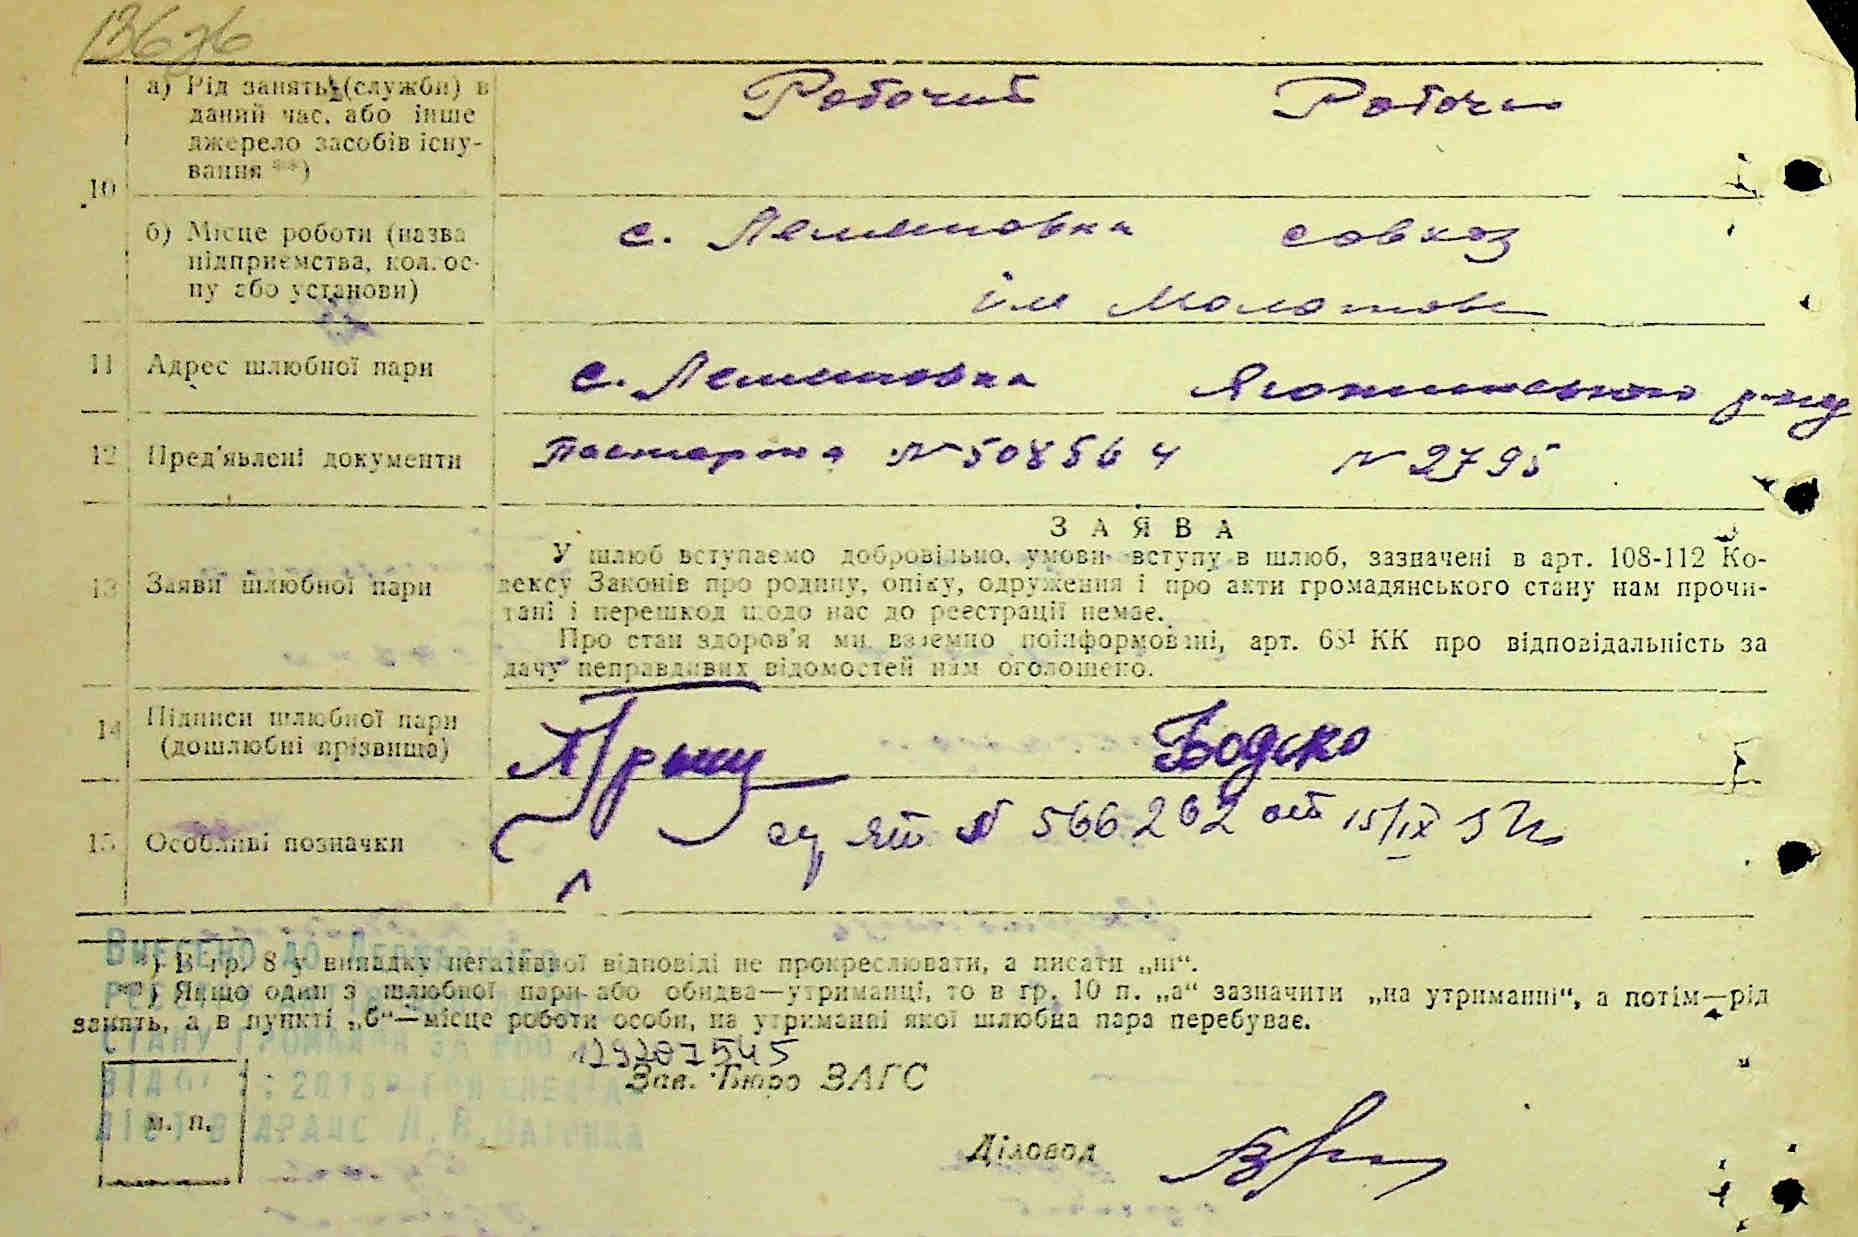 а) Рід занять (службн) в
даний час, або інше
джерело засобів існу-
вання **)
Робочий Робоч
10
б) Місце роботи (назва
підприємства, кол. ос-
пу або установи)
с. Лемешовка совхоз
им Молотова
11 Адрес шлюбної пари
с. Лемешовка Яготинського р-ну
12 Пред'явлені документи
Паспорта № 508564 № 2795
13 Заяви шлюбної пари
ЗАЯВА
У шлюб вступаємо добровільно, умови вступу в шлюб, зазначені в арт. 108-112 Ко-
дексу Законів про родину, опіку, одруження і про акти громадянського стану нам прочи-
тані і перешкод щодо нас до реєстрації немає.
Про стан здоров'я ми взаємно поінформовані, арт. 68¹ КК про відповідальність за
дачу неправдивих відомостей нам оголошено.
14 Підписи шлюбної пари
(дошлюбні прізвища)
Бодско
15 Особливі позначки
ЯШ № 566262 от 15/IX
*) В гр. 8 у випадку негативної відповіді не прокреслювати, а писати „ні“.
**) Якщо один з шлюбної пари або обидва—утриманці, то в гр. 10 п. „а“ зазначити „на утриманні“, а потім—рід
занять, а в пункті „б“—місце роботи особи, на утриманні якої шлюбна пара перебуває.
Внесено до Державного
стану громадян за
Зав. Бюро ЗАГС
м. п.
Діловод